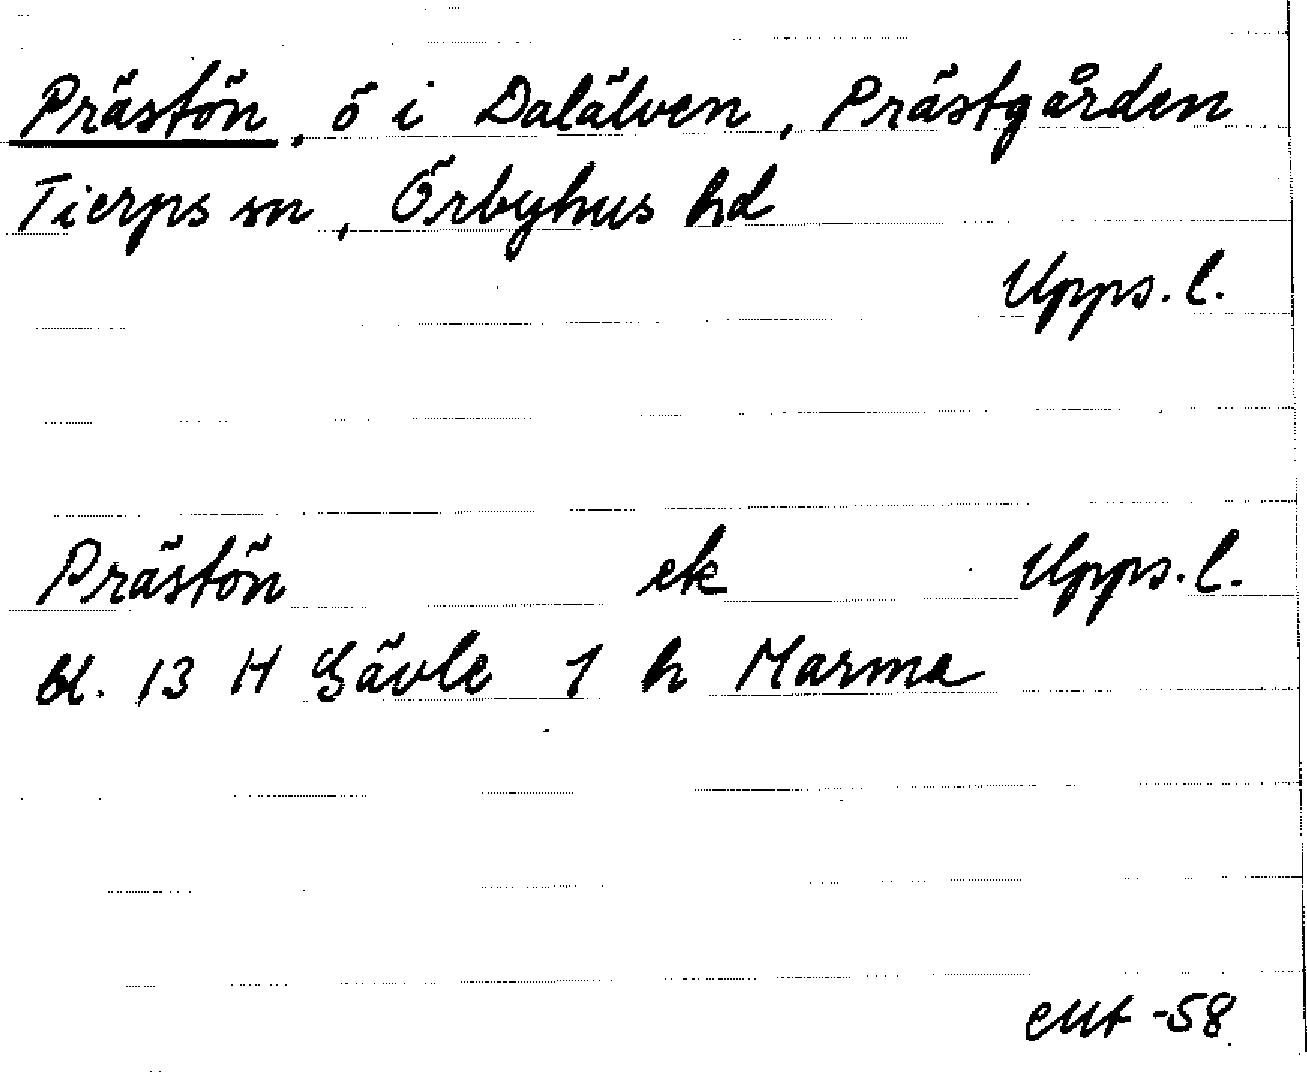 Prästön, ö i Dalälven, Prästgården
Tierps sn, Örbyhus hd
Upps. l.
Prästön ek Upps. l.
bl. 13 H Gävle 1 h Marma
-58